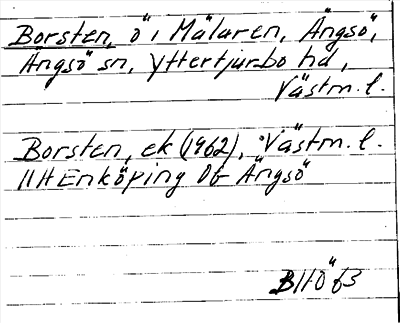 Borsten, ö i Mälaren, Ängsö,
Ängsö sn, Yttertjurbo hd,
Västm. l.
Borsten, ek (1962), Västm. l.
11H Enköping 0f Ängsö